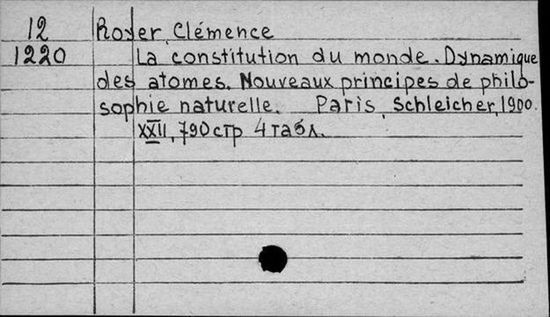 12 Royer, Clémence
1220 La constitution du monde. Dynamique
des atomes. Nouveaux principes de philo-
sophie naturelle. Paris, Schleicher, 1900.
XXII, 790 стр 4 табл.